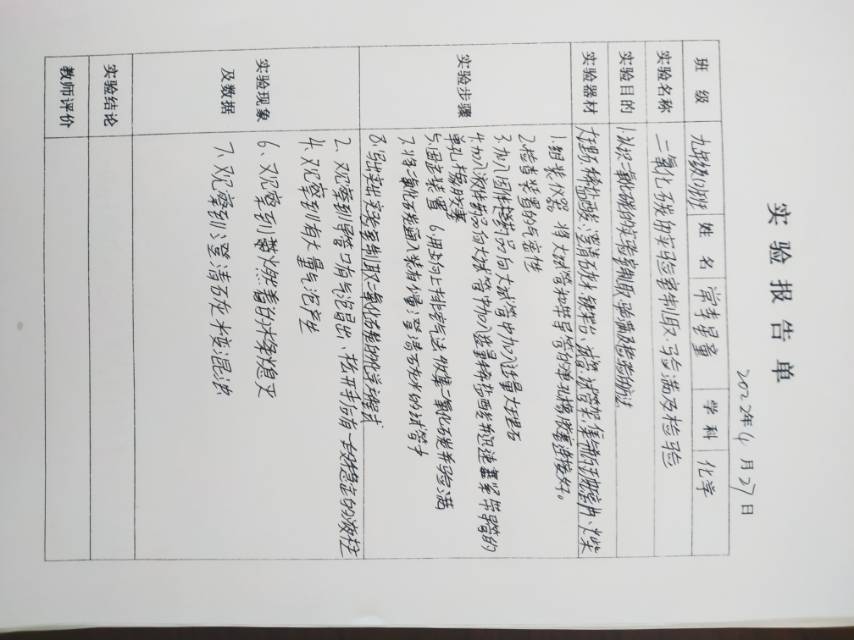 实验报告单
2022年4月27日
班级 九年级 姓名 学科 化学
实验名称 二氧化碳的实验室制取、验满及检验
实验目的 1.认识二氧化碳的实验室制取、验满及检验的方法
实验器材 大理石、稀盐酸、澄清石灰水、铁架台、试管、试管架、集气瓶、玻璃片、
实验步骤
1.组装仪器 将大试管和带导管的单孔橡胶塞连接好。
2.检查装置的气密性
3.加入固体药品向大试管中加入适量大理石
4.加入液体药品向大试管中加入适量稀盐酸并迅速塞紧带导管的
单孔橡胶塞
5.固定装置 6.用向上排空气法收集二氧化碳并验满
7.将二氧化碳通入装有少量澄清石灰水的试管中
8.写出实验室制取二氧化碳的化学
实验现象
及数据
2.观察到导管口有气泡冒出、松开手后有一段稳定的液柱
4.观察到有大量气泡产生
6.观察到燃着的木条熄灭
7.观察到澄清石灰水变浑浊
实验结论
教师评价